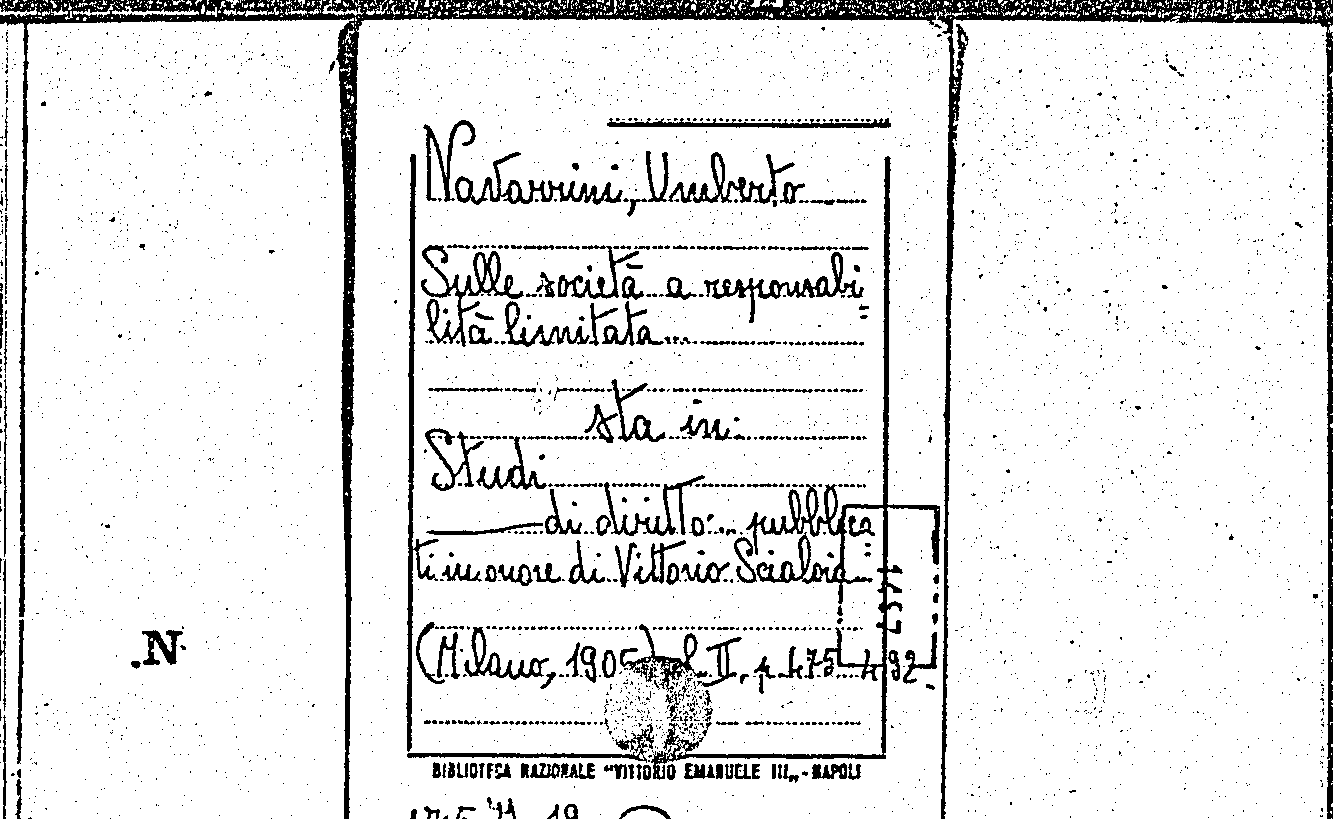 Navarrini, Umberto
Sulle società a responsabi=
lità limitata...
sta in:
Studi
—— di diritto... pubblica=
ti in onore di Vittorio Scialoia...
(Milano, 1905) vol. II, p. 475-492.
.N.
BIBLIOTECA NAZIONALE "VITTORIO EMANUELE III„ - NAPOLI